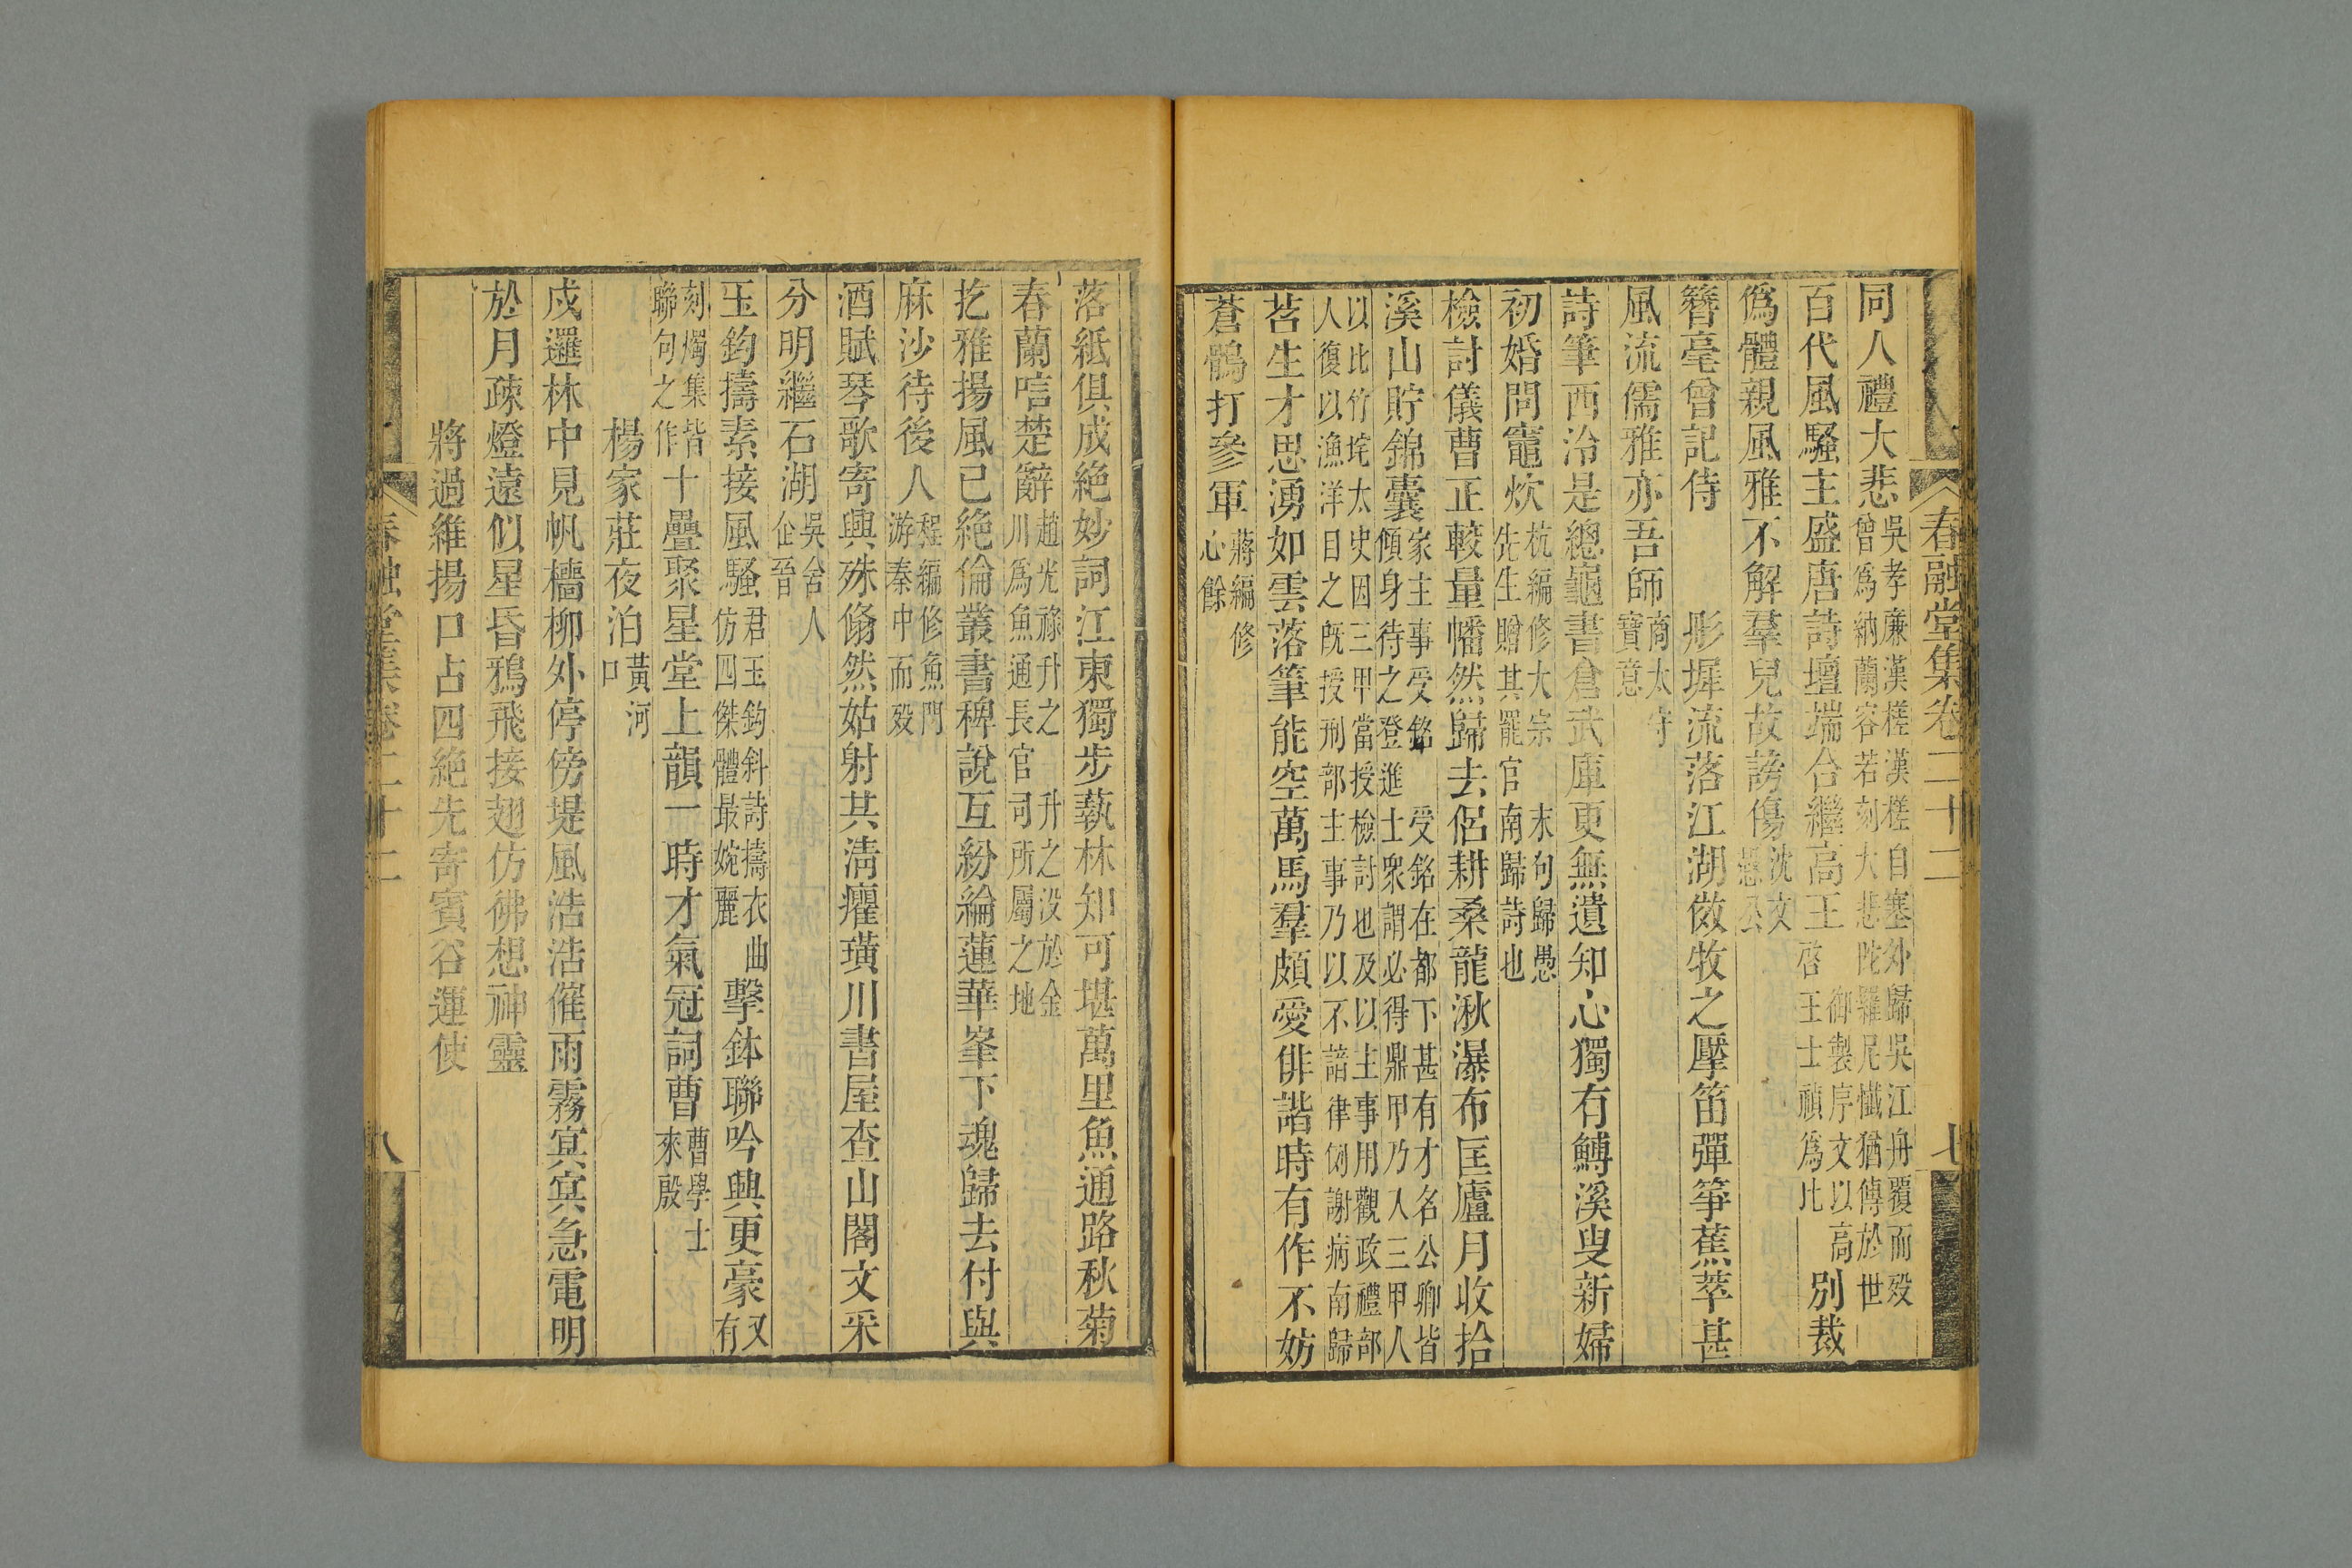 春融堂集卷二十二 七
同人禮大悲
吳孝廉漢槎漢槎自塞外歸吳江舟覆而歿
曾爲納蘭容若刻大悲陀羅尼懺猶傳於世
百代風騷主盛唐詩壇端合繼高王
御製序文以高
啓王士禎爲比
別裁
僞體親風雅不解羣兒故謗傷
沈文
慤公
簪毫曾記侍 彤墀流落江湖倣牧之壓笛彈箏蕉萃甚
風流儒雅亦吾師
商太守
寶意
詩筆西泠是總龜書倉武庫更無遺知心獨有鱄溪叟新婦
初婚問竈炊
杭編修大宗 末句歸愚
先生贈其罷官南歸詩也
檢討儀曹正較量幡然歸去侶耕桑龍湫瀑布匡廬月收拾
溪山貯錦囊
家主事受銘 受銘在都下甚有才名公卿皆
傾身待之登進士衆謂必得鼎甲乃入三甲人
以比竹垞太史因三甲當授檢討也及以主事用觀政禮部
人復以漁洋目之旣授刑部主事乃以不諳律例謝病南歸
苕生才思湧如雲落筆能空萬馬羣頗愛俳諧時有作不妨
蒼鶻打參軍
蔣編修
心餘
落紙俱成絶妙詞江東獨步蓺林知可堪萬里魚通路秋菊
春蘭唁楚辭
趙光祿升之 升之没於金
川爲魚通長官司所屬之地
扢雅揚風已絶倫叢書稗說互紛綸蓮華峯下魂歸去付與
麻沙待後人
程編修魚門
游秦中而歿
酒賦琴歌寄興殊翛然姑射共淸癯璜川書屋查山閣文采
分明繼石湖
吳舍人
企晉
玉鈎擣素接風騷
君玉鈎斜詩擣衣曲
仿四傑體最婉麗
擊鉢聯吟興更豪
又
有
刻燭集皆
聯句之作
十疊聚星堂上韻一時才氣冠詞曹
曹學士
來殷
楊家莊夜泊
黃河
口
戍邏林中見帆檣柳外停傍堤風浩浩催雨霧冥冥急電明
於月疎燈遠似星昏鴉飛接翅仿彿想神靈
將過維揚口占四絶先寄賓谷運使
春融堂集卷二十二 八